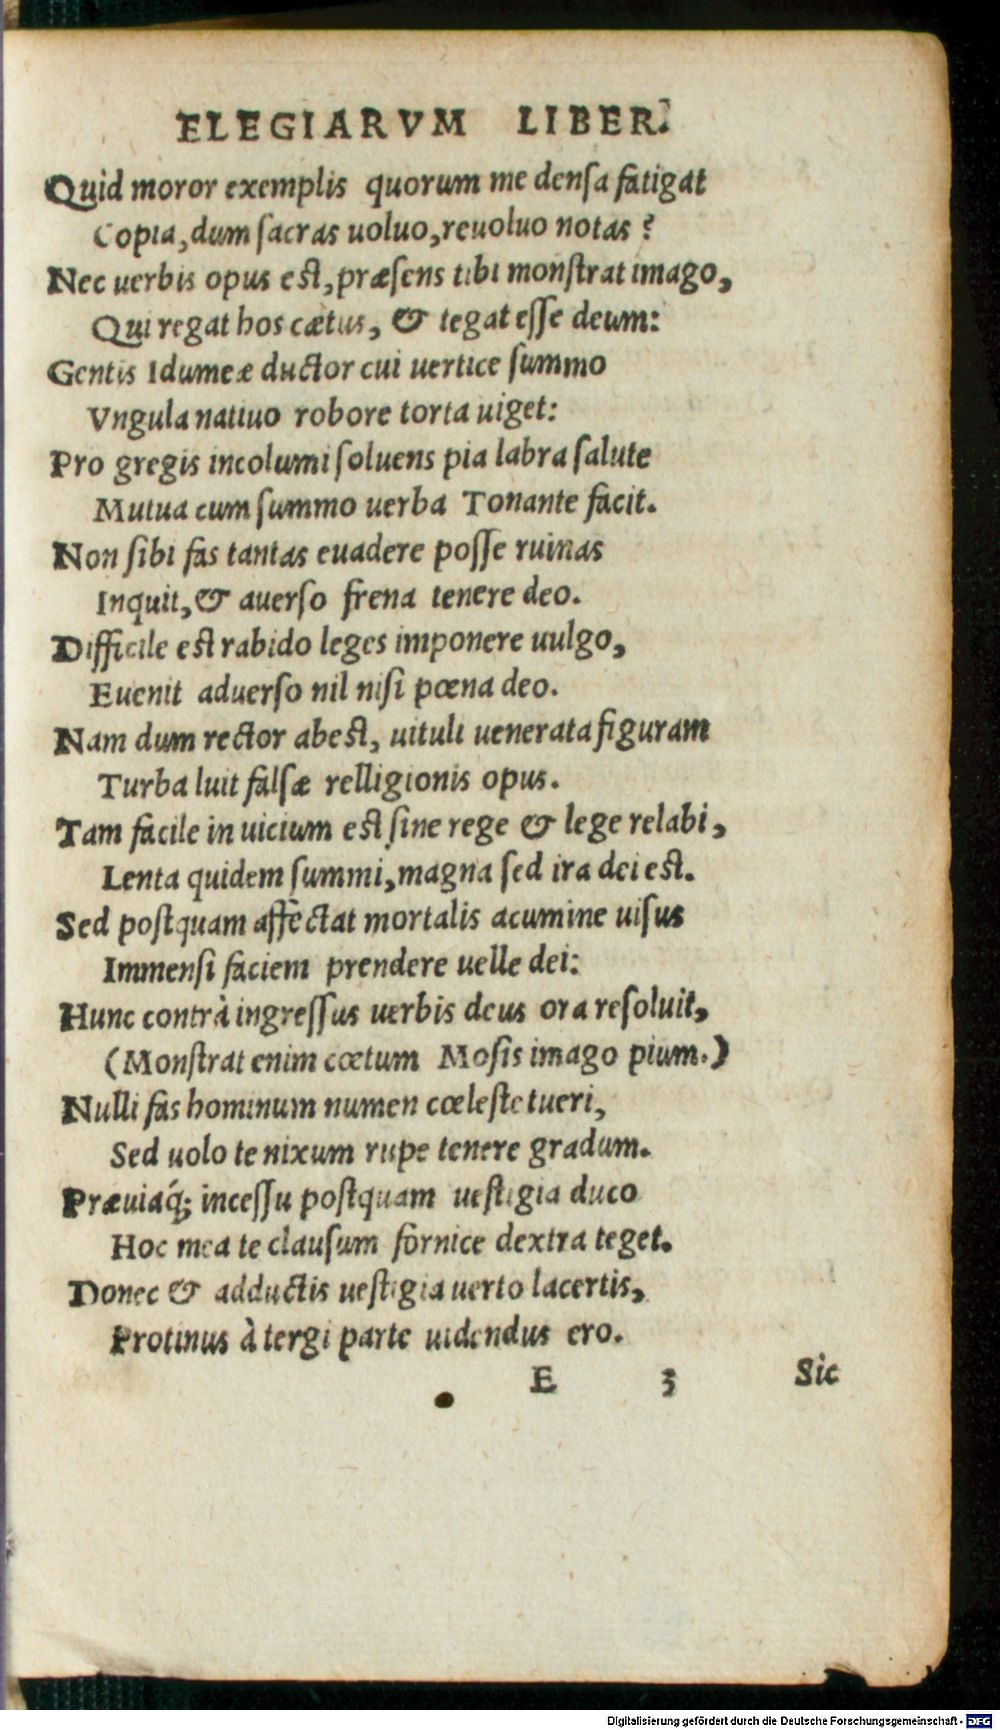 ELEGIARVM LIBER.
Quid moror exemplis quorum me densa fatigat
Copia, dum sacras uoluo, reuoluo notas?
Nec uerbis opus est, præsens tibi monstrat imago,
Qui regat hos cætus, & tegat esse deum:
Gentis Idumeæ ductor cui uertice summo
Vngula natiuo robore torta uiget:
Pro gregis incolumi soluens pia labra salute
Mutua cum summo uerba Tonante facit.
Non sibi fas tantas euadere posse ruinas
Inquit, & auerso frena tenere deo.
Difficile est rabido leges imponere uulgo,
Euenit aduerso nil nisi pœna deo.
Nam dum rector abest, uituli uenerata figuram
Turba luit falsæ relligionis opus.
Tam facile in uicium est sine rege & lege relabi,
Lenta quidem summi, magna sed ira dei est.
Sed postquam affectat mortalis acumine uisus
Immensi faciem prendere uelle dei:
Hunc contrà ingressus uerbis deus ora resoluit,
(Monstrat enim cœtum Mosis imago pium.)
Nulli fas hominum numen cœleste tueri,
Sed uolo te nixum rupe tenere gradum.
Præuiaq́; incessu postquam uestigia duco
Hoc mea te clausum fornice dextra teget.
Donec & adductis uestigia uerto lacertis,
Protinus à tergi parte uidendus ero.
E 3 Sic
Digitalisierung gefördert durch die Deutsche Forschungsgemeinschaft - DFG